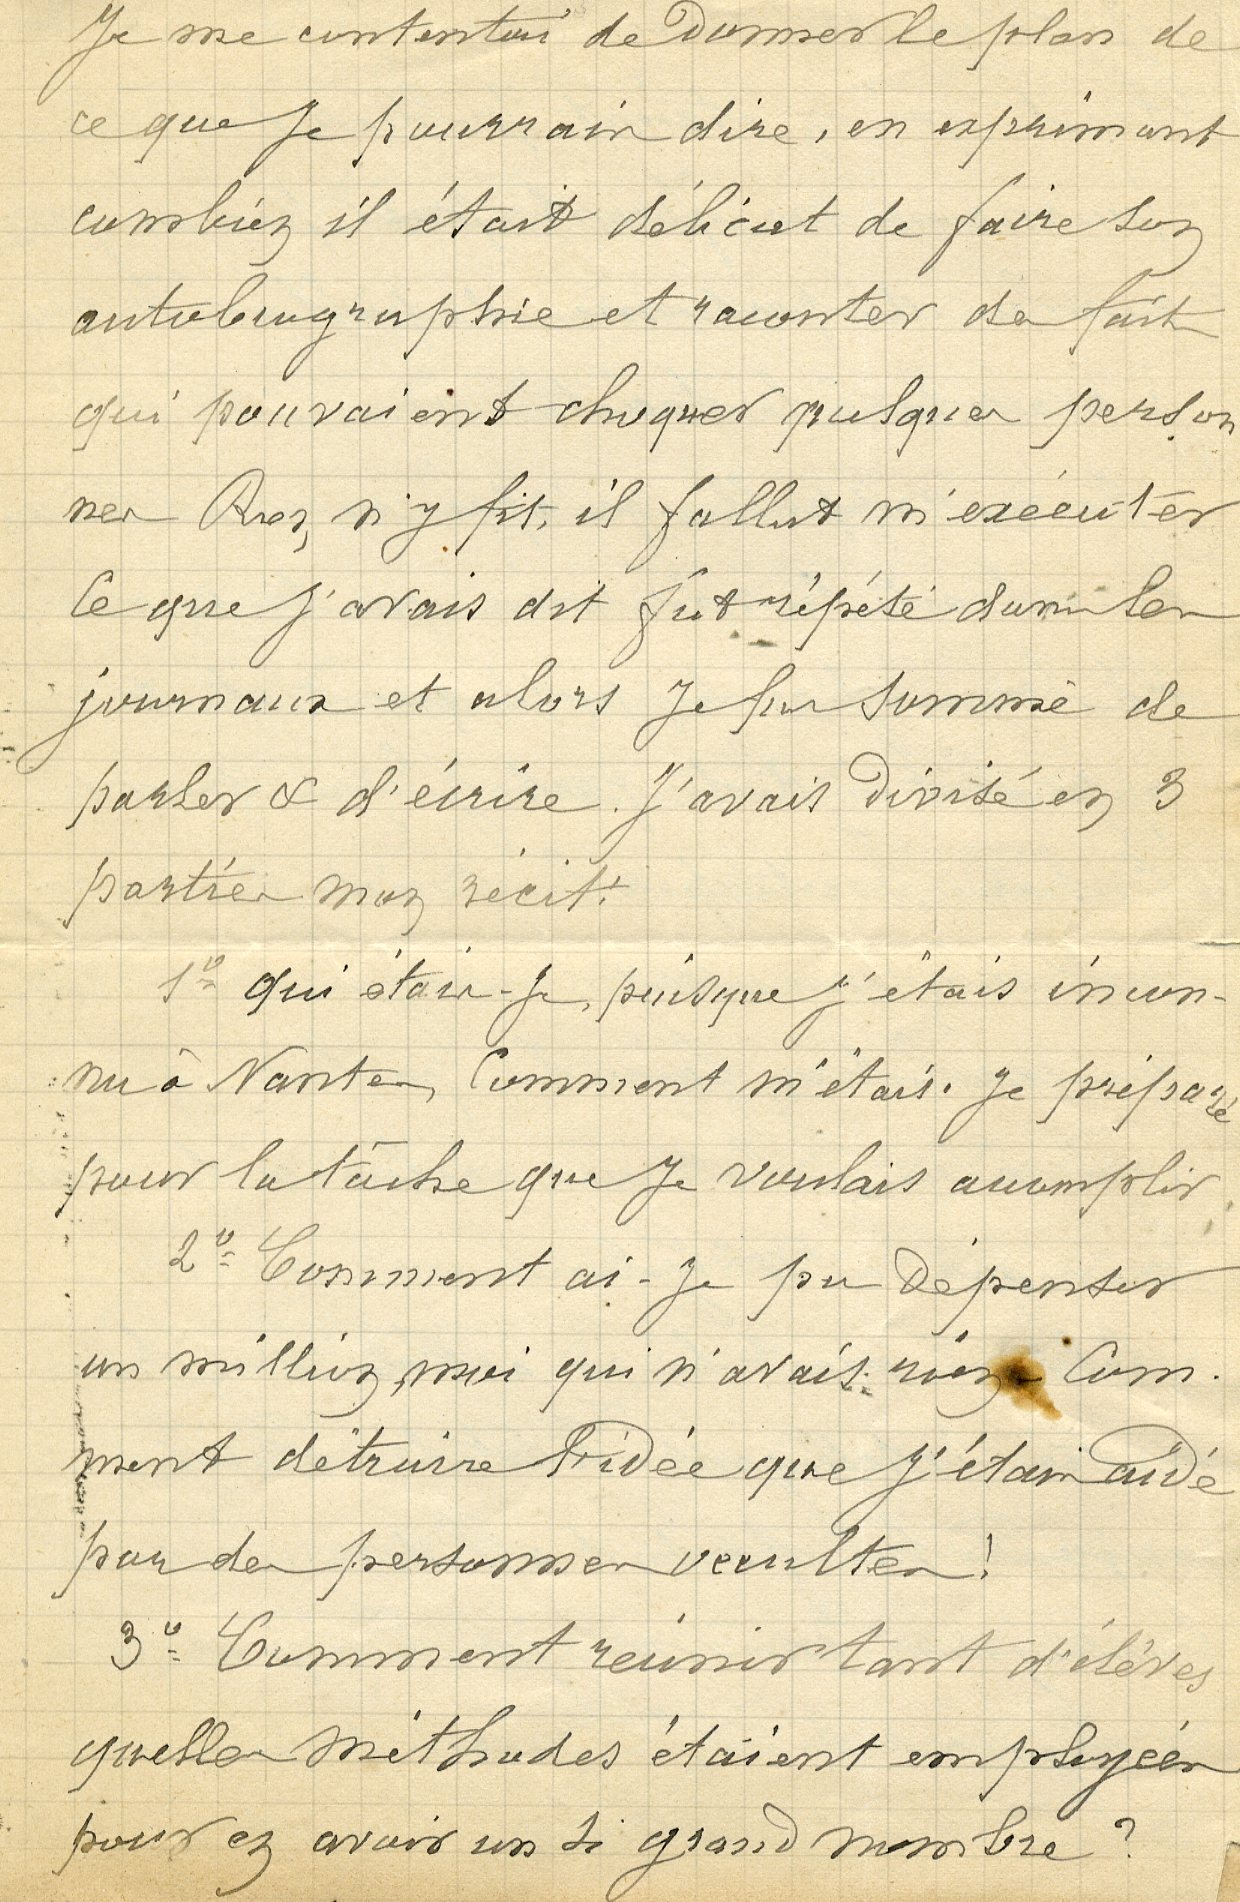 Je me contentai de Donner le plan de
ce que Je pourrais dire, en exprimant
combien il était délicat de faire son
autobiographie et raconter des faits
qui pouvaient choquer quelques person
nes Rien n'y fit, il fallut m'exécuter
Ce que j'avais dit fut répété dans les
journaux et alors Je fus sommé de
parler & d'écrire. J'avais Divisé en 3
parties mon récit:
1º qui étais-Je, puisque j'étais incon-
nu à Nantes, Comment m'étais-Je préparé
pour la tâche que Je voulais accomplir
2º Comment ai-Je pu Dépenser
un million, moi qui n'avais rien Com-
ment détruire l'idée que J'étais aidé
par des personnes occultes!
3º Comment réunir tant d'élèves
quelles méthodes étaient employées
pour en avoir un si grand nombre?